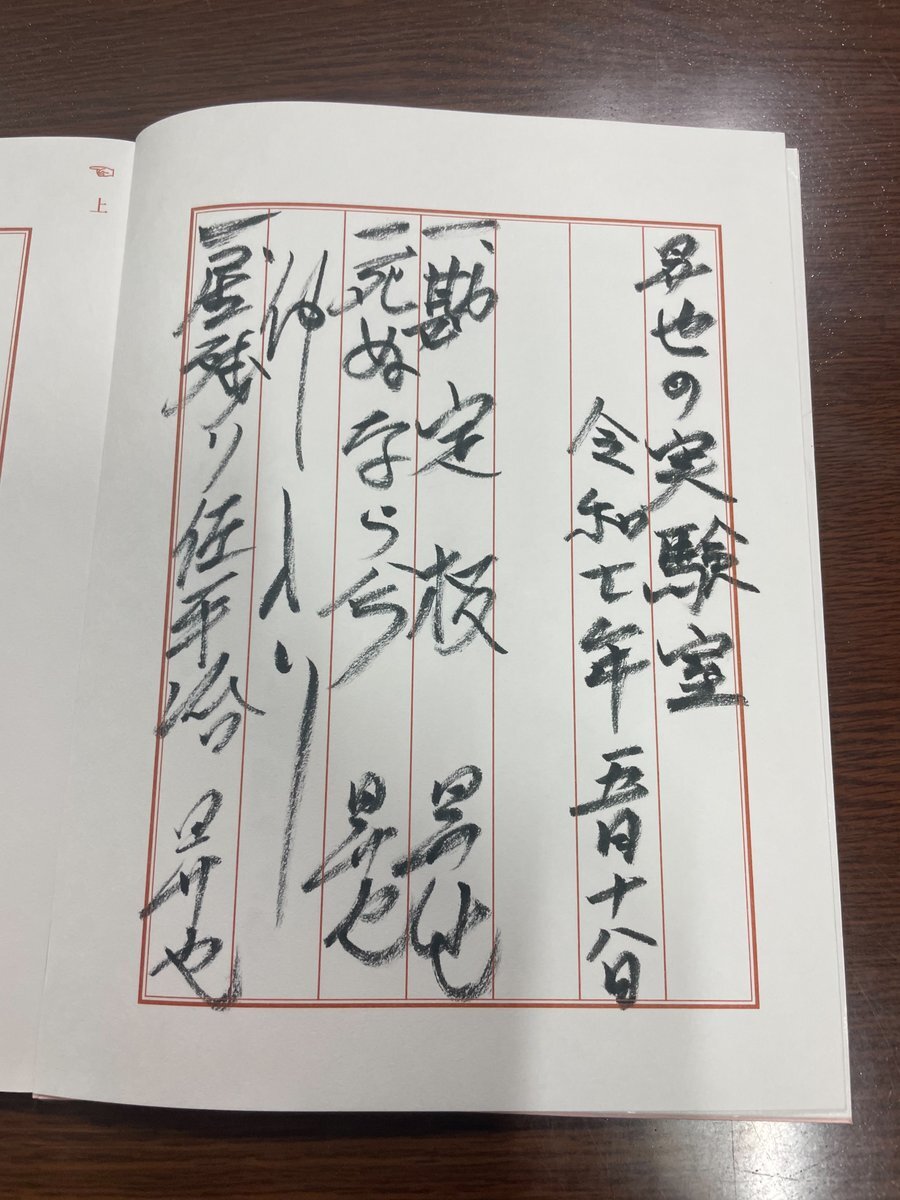 昇也の実験室
令和七年五月十八日
一、勘定板　昇也
一、死ぬなら今　昇也
仲入り
一、居残り佐平治　昇也
上